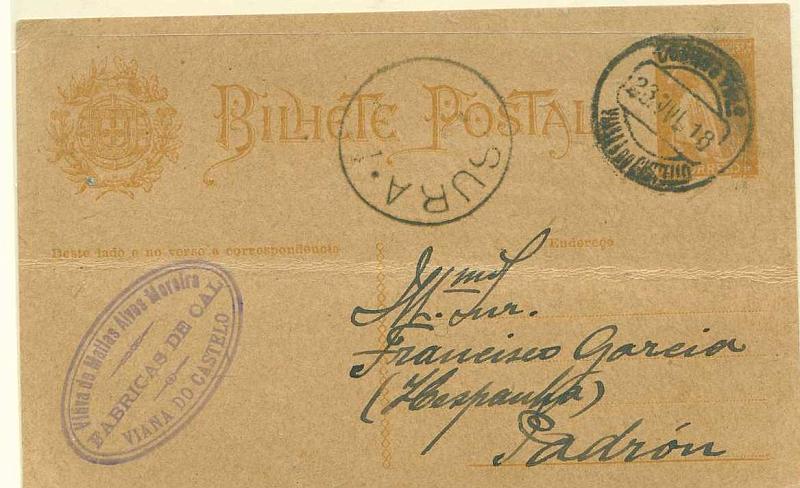 BILHETE POSTAL
23.JUL.18
VIANA DO CASTELO
SURA. 1
CORREIO
Deste lado e no verso a correspondencia
Endereço
Viuva de Matias Alves Moreira
FABRICAS DE CAL
VIANA DO CASTELO
Snr.
Francisco Garcia
(Hespanha)
Padrón